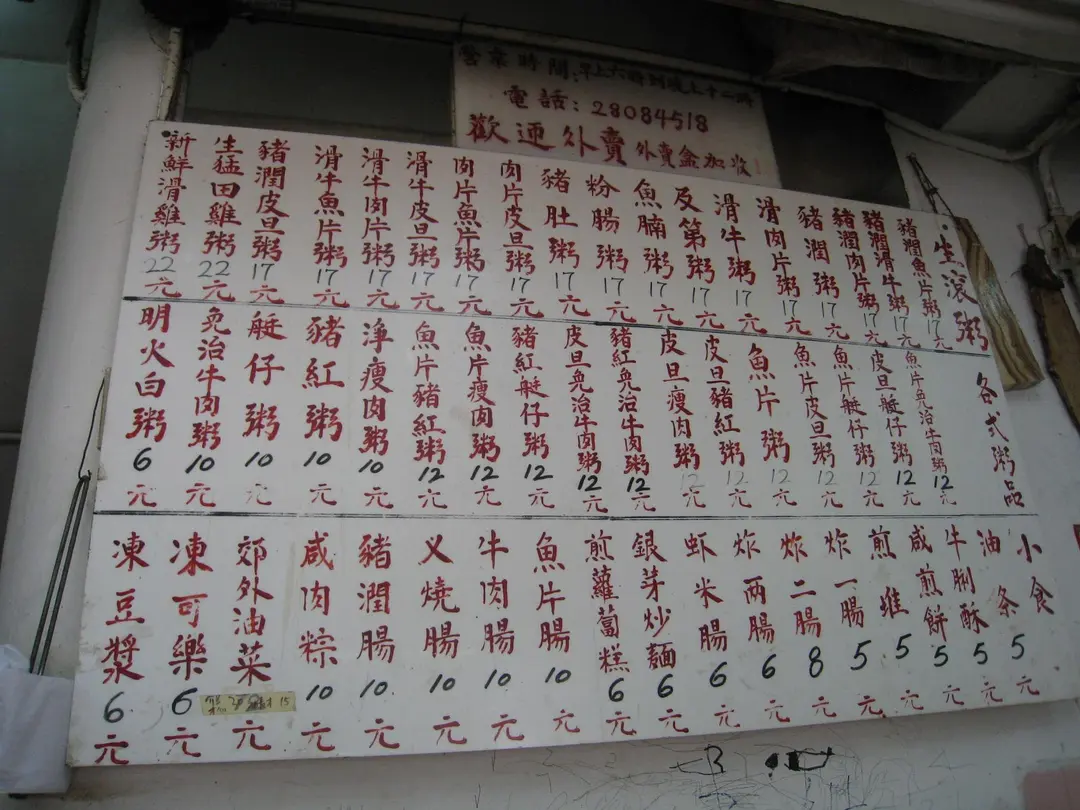 營業時間:早上六時到晚上十二時
電話:28084518
歡迎外賣 外賣盒加收
生滾粥
豬潤魚片粥 17元
豬潤滑牛粥 17元
豬潤肉片粥 17元
豬潤粥 17元
滑肉片粥 17元
滑牛粥 17元
及第粥 17元
魚腩粥 17元
粉腸粥 17元
豬肚粥 17元
肉片皮旦粥 17元
肉片魚片粥 17元
滑牛皮旦粥 17元
滑牛肉片粥 17元
滑牛魚片粥 17元
豬潤皮旦粥 17元
生猛田雞粥 22元
新鮮滑雞粥 22元
各式粥品
魚片免治牛肉粥 12元
皮旦艇仔粥 12元
魚片艇仔粥 12元
魚片皮旦粥 12元
魚片粥 12元
皮旦豬紅粥 12元
皮旦瘦肉粥 12元
豬紅免治牛肉粥 12元
皮旦免治牛肉粥 12元
豬紅艇仔粥 12元
魚片瘦肉粥 12元
魚片豬紅粥 12元
淨瘦肉粥 10元
豬紅粥 10元
艇仔粥 10元
免治牛肉粥 10元
明火白粥 6元
小食
油条 5元
牛脷酥 5元
咸煎餅 5元
煎堆 5元
炸一腸 5元
炸二腸 8元
炸兩腸 6元
虾米腸 6元
銀芽炒麵 6元
煎蘿蔔糕 6元
魚片腸 10元
牛肉腸 10元
义燒腸 10元
豬潤腸 10元
咸肉粽 10元
郊外油菜 元
凍可樂 6元
凍豆漿 6元